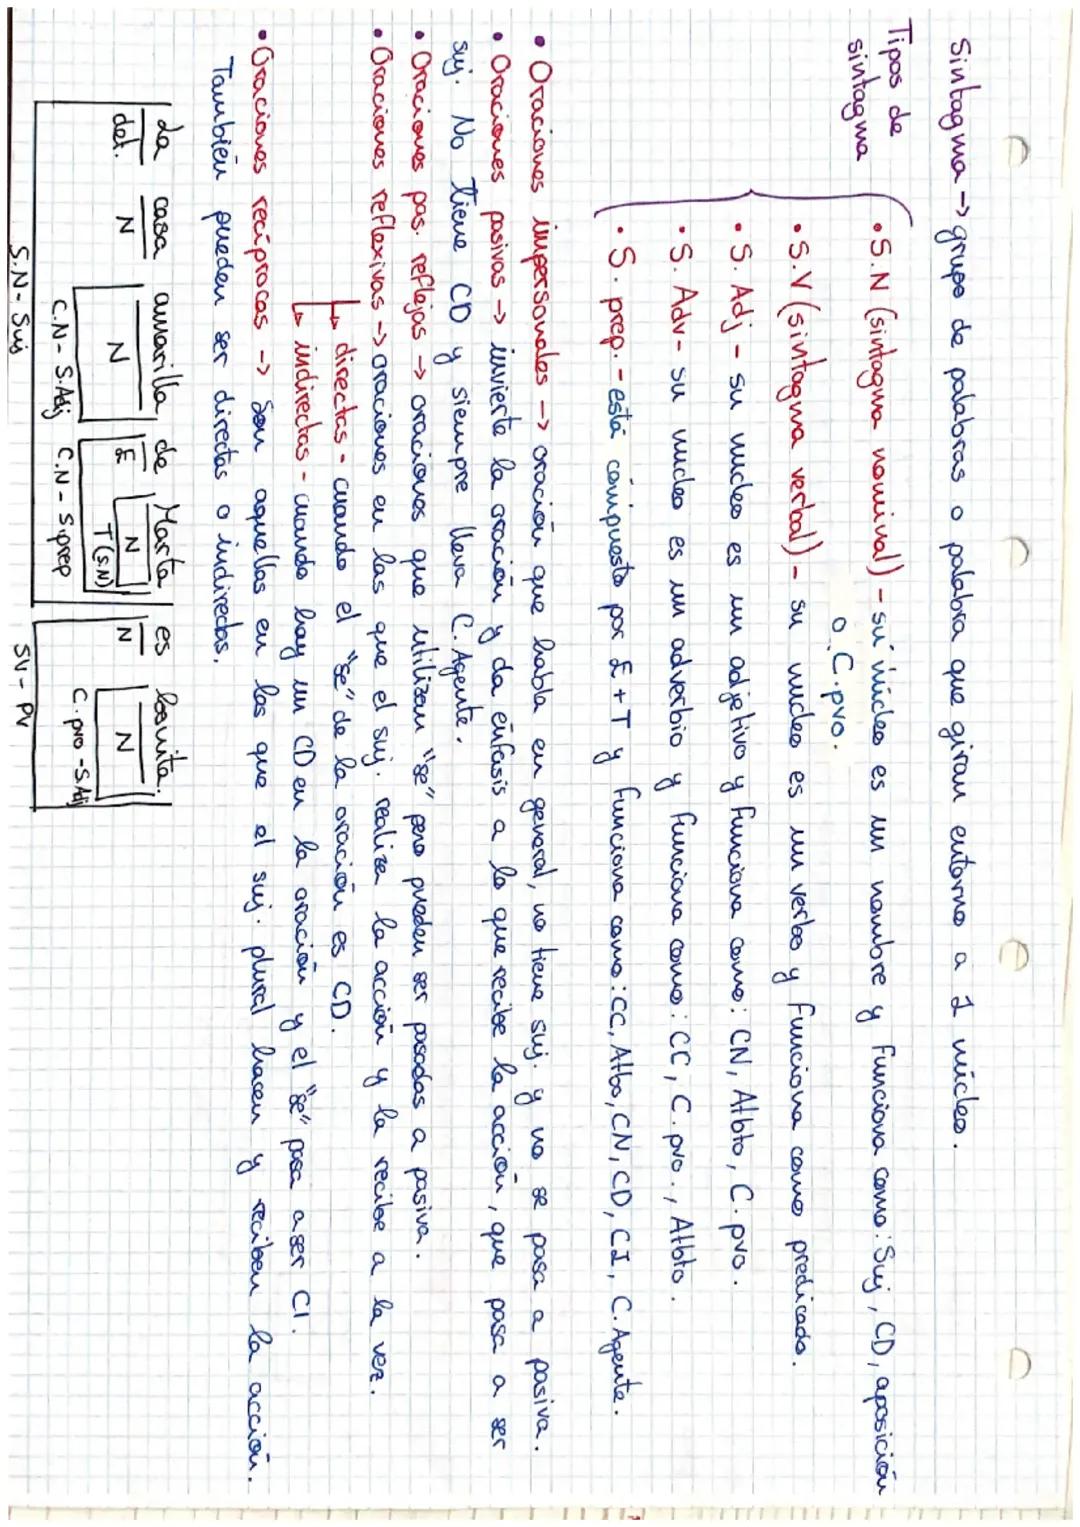 Sintagma → grupo de palabras o palabra que giran entorno a 1 núcleo.
Tipos de
sintagma
• S.N (sintagma nominal) - su núcleo es un nombre y funciona como: Suj, CD, aposición
o C.pvo.
• S.V (sintagma verbal) - su nucleo es un verbo y funciona como predicado.
• S. Adj - su nucleo es un adjetivo y funciona como: CN, Atbto, C.pvo.
• S. Adv - su nucleo es un adverbio y funciona como: CC, C.pvo., Atbto.
• S. prep. - está compuesto por E + T y funciona como: CC, Atbo, CN, CD, CI, C.Agente.
• Oraciones impersonales → oración que habla en general, no tiene suj. y no se pasa a pasiva.
• Oraciones pasivas → invierte la oración y da énfasis a lo que recibe la acción, que pasa a ser
suj. No tiene CD y siempre lleva C.Agente.
• Oraciones pas. reflejas → oraciones que utilizan "se" pero pueden ser pasadas a pasiva.
• Oraciones reflexivas → oraciones en las que el suj. realiza la acción y la recibe a la vez.
↳ directas - cuando el "se" de la oración es CD.
↳ indirectas - cuando hay un CD en la oración y el "se" pasa a ser CI.
• Oraciones recíprocas → Son aquellas en las que el suj. plural hacen y reciben la acción.
También pueden ser directas o indirectas.
La casa amarilla de Marta es bonita.
det. N N E N N N
T (S.N)
C.N - S.Adj C.N - S.prep C.pvo - S.Adj
S.N - Suj SV - PV